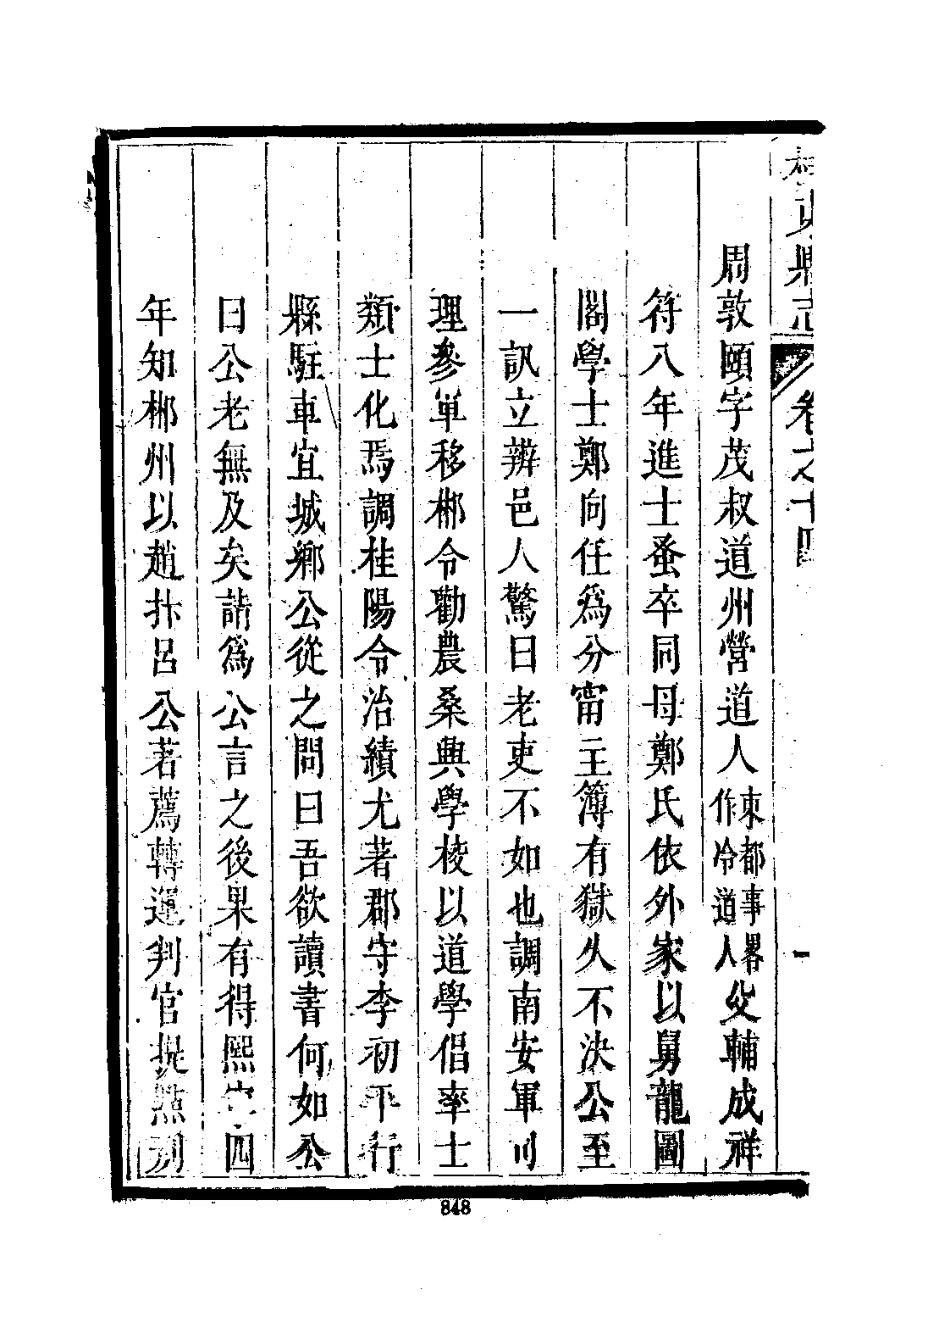 桂東縣志 卷之十四 一
周敦頤字茂叔道州營道人東都事畧作冷道人父輔成祥
符八年進士蚤卒同母鄭氏依外家以舅龍圖
閣學士鄭向任爲分甯主簿有獄久不決公至
一訊立辨邑人驚曰老吏不如也調南安軍司
理參軍移郴令勸農桑興學校以道學倡率士
類士化焉調桂陽令治績尤著郡守李初平行
縣駐車宜城鄉公從之問曰吾欲讀書何如公
曰公老無及矣請爲公言之後果有得熙寧四
年知郴州以趙抃呂公著薦轉運判官提點刑
848